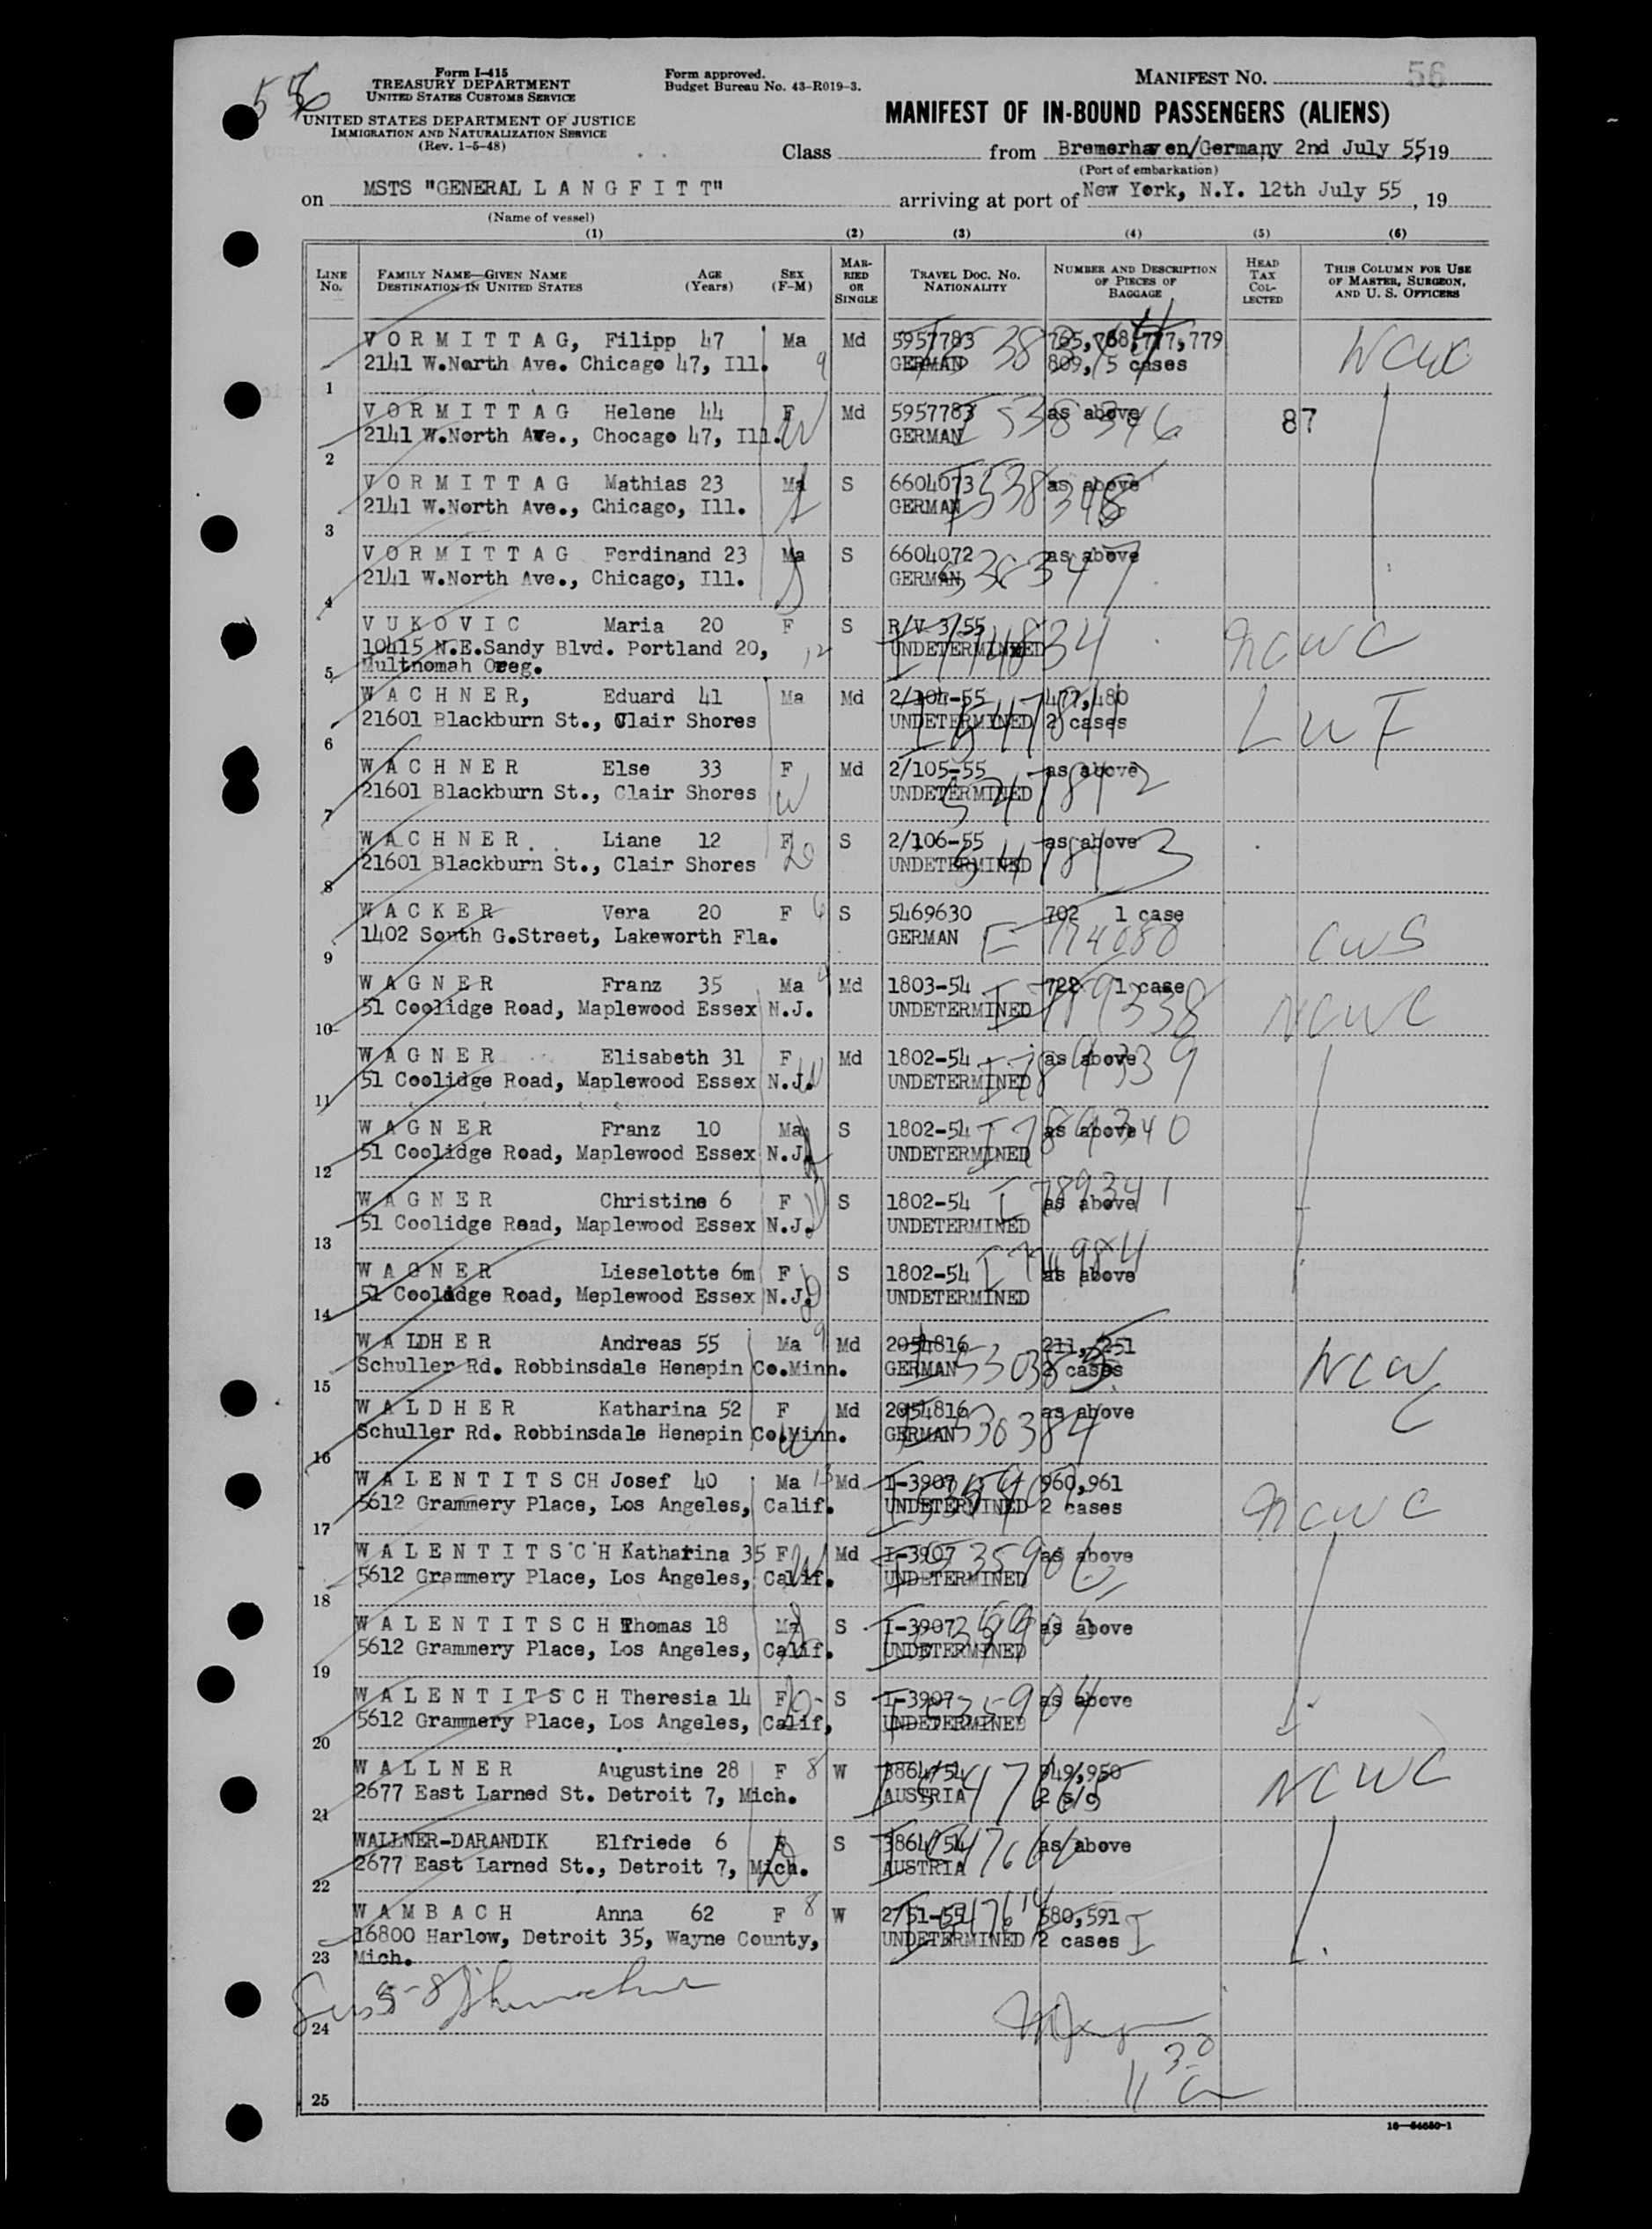 56
Form I-415
TREASURY DEPARTMENT
UNITED STATES CUSTOMS SERVICE
UNITED STATES DEPARTMENT OF JUSTICE
IMMIGRATION AND NATURALIZATION SERVICE
(Rev. 1-5-48)
Form approved.
Budget Bureau No. 43-R019-3.
MANIFEST NO. 56
MANIFEST OF IN-BOUND PASSENGERS (ALIENS)
Class from Bremerhaven/Germany 2nd July 55, 19
(Port of embarkation)
on MSTS "GENERAL L A N G F I T T" arriving at port of New York, N.Y. 12th July 55, 19
(Name of vessel)
(1) (2) (3) (4) (5) (6)
LINE NO. FAMILY NAME—GIVEN NAME DESTINATION IN UNITED STATES AGE (Years) SEX (F-M) MARRIED OR SINGLE TRAVEL DOC. NO. NATIONALITY NUMBER AND DESCRIPTION OF PIECES OF BAGGAGE HEAD TAX COLLECTED THIS COLUMN FOR USE OF MASTER, SURGEON, AND U. S. OFFICERS
V O R M I T T A G, Filipp 47 Ma Md 5957783 765,768,777,779 NCWC
2141 W.North Ave. Chicago 47, Ill. 9 GERMAN 809, 5 cases
1
V O R M I T T A G Helene 44 F Md 5957783 as above 87
2141 W.North Ave., Chocago 47, Ill. W GERMAN 538346
2
V O R M I T T A G Mathias 23 Ma S 6604073 as above
2141 W.North Ave., Chicago, Ill. GERMAN I 538348
3
V O R M I T T A G Ferdinand 23 Ma S 6604072 as above
2141 W.North Ave., Chicago, Ill. GERMAN 538347
4
V U K O V I C Maria 20 F S R/V 3/55 NCWC
10415 N.E.Sandy Blvd. Portland 20, 12 UNDETERMINED
5 Multnomah Oreg.
W A C H N E R, Eduard 41 Ma Md 2/104-55 477,480 LWF
21601 Blackburn St., Clair Shores UNDETERMINED 2 cases
6
W A C H N E R Else 33 F Md 2/105-55 as above
21601 Blackburn St., Clair Shores W UNDETERMINED
7
W A C H N E R Liane 12 F S 2/106-55 as above
21601 Blackburn St., Clair Shores UNDETERMINED
8
W A C K E R Vera 20 F S 5469630 702 1 case
1402 South G.Street, Lakeworth Fla. GERMAN CWS
9
W A G N E R Franz 35 Ma Md 1803-54 722 1 case
51 Coolidge Road, Maplewood Essex N.J. UNDETERMINED NCWC
10
W A G N E R Elisabeth 31 F Md 1802-54 as above
51 Coolidge Road, Maplewood Essex N.J. W UNDETERMINED I 789339
11
W A G N E R Franz 10 Ma S 1802-54 I 789340 as above
51 Coolidge Road, Maplewood Essex N.J. UNDETERMINED
12
W A G N E R Christine 6 F S 1802-54 I 789341 as above
51 Coolidge Road, Maplewood Essex N.J. UNDETERMINED
13
W A G N E R Lieselotte 6m F S 1802-54 as above
51 Coolidge Road, Meplewood Essex N.J. UNDETERMINED
14
W A LDH E R Andreas 55 Ma 9 Md 2054816 211, 251 NCWC
Schuller Rd. Robbinsdale Henepin Co.Minn. GERMAN 2 cases
15
W A L D H E R Katharina 52 F Md 2054816 as above
Schuller Rd. Robbinsdale Henepin Co.Minn. GERMAN 530384
16
W A L E N T I T S CH Josef 40 Ma 13 Md I-3907 960,961
5612 Grammery Place, Los Angeles, Calif. UNDETERMINED 2 cases NCWC
17
W A L E N T I T S C H Katharina 35 F Md I-3907 as above
5612 Grammery Place, Los Angeles, Calif. W UNDETERMINED
18
W A L E N T I T S C H Thomas 18 Ma S I-3907 as above
5612 Grammery Place, Los Angeles, Calif. UNDETERMINED
19
W A L E N T I T S C H Theresia 14 F S I-3907 as above
5612 Grammery Place, Los Angeles, Calif, UNDETERMINED
20
W A L L N E R Augustine 28 F 8 W 3864/54 949,950 NCWC
2677 East Larned St. Detroit 7, Mich. AUSTRIA 2 s/c
21
WALLNER-DARANDIK Elfriede 6 F S 3864/54 as above
2677 East Larned St., Detroit 7, Mich. AUSTRIA
22
W A M B A C H Anna 62 F 8 W 2/51-55 580,591
16800 Harlow, Detroit 35, Wayne County, UNDETERMINED 2 cases
23 Mich.
24
11 30
25
16—54650-1